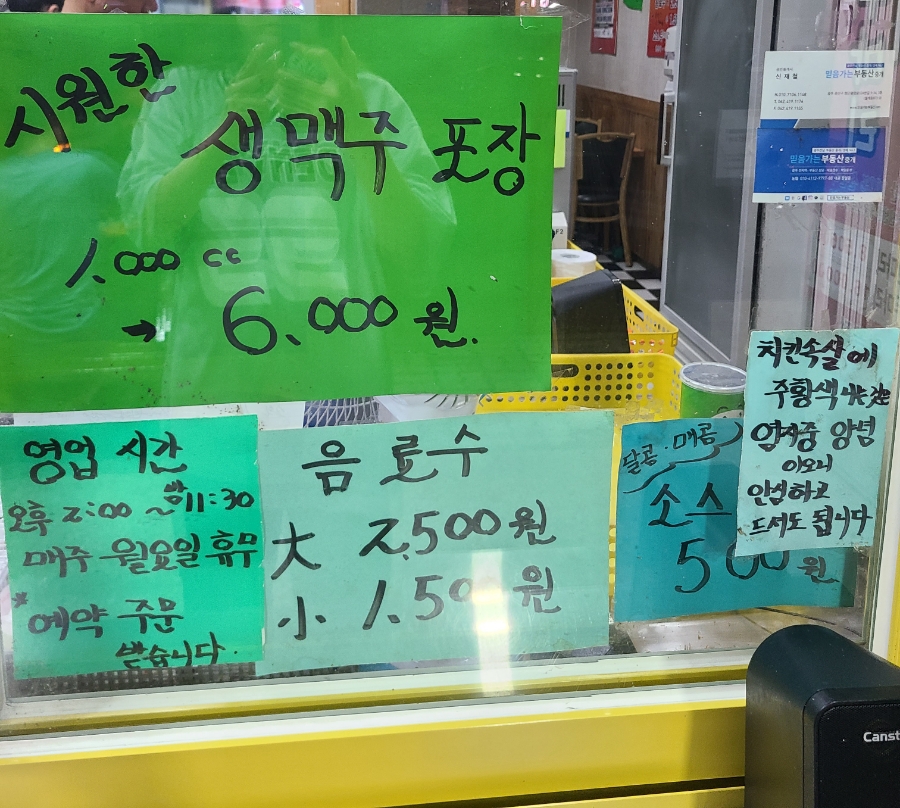 시원한
생맥주 포장
1.000 cc
→ 6.000 원.
영업 시간
오후 2:00 ~ 밤 11:30
매주 월요일 휴무
* 예약 주문
받습니다.
음료수
大 2.500 원
小 1.50 원
달콤·매콤
소스
500 원
치킨속살에
주황색
염지중 양념
이오니
안심하고
드셔도 됩니다
신재철
믿음가는부동산중개
믿음가는부동산중개
Canst